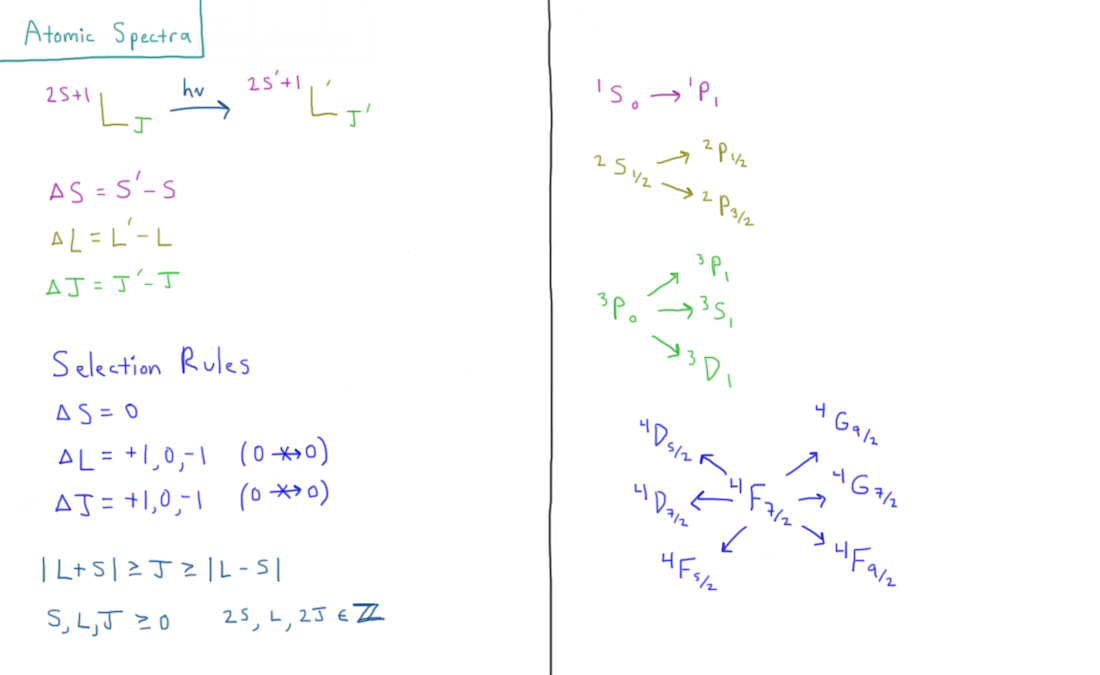 Atomic Spectra
²ˢ⁺¹L_J —hν→ ²ˢ'⁺¹L'_J'
ΔS = S' - S
ΔL = L' - L
ΔJ = J' - J
Selection Rules
ΔS = 0
ΔL = +1, 0, -1 (0 ↮ 0)
ΔJ = +1, 0, -1 (0 ↮ 0)
|L+S| ≥ J ≥ |L-S|
S, L, J ≥ 0 2S, L, 2J ∈ ℤ
¹S₀ → ¹P₁
²P₁/₂
²S₁/₂
²P₃/₂
³P₁
³P₀ → ³S₁
³D₁
⁴G₉/₂
⁴D₅/₂
⁴G₇/₂
⁴D₇/₂ ← ⁴F₇/₂ →
⁴F₉/₂
⁴F₅/₂